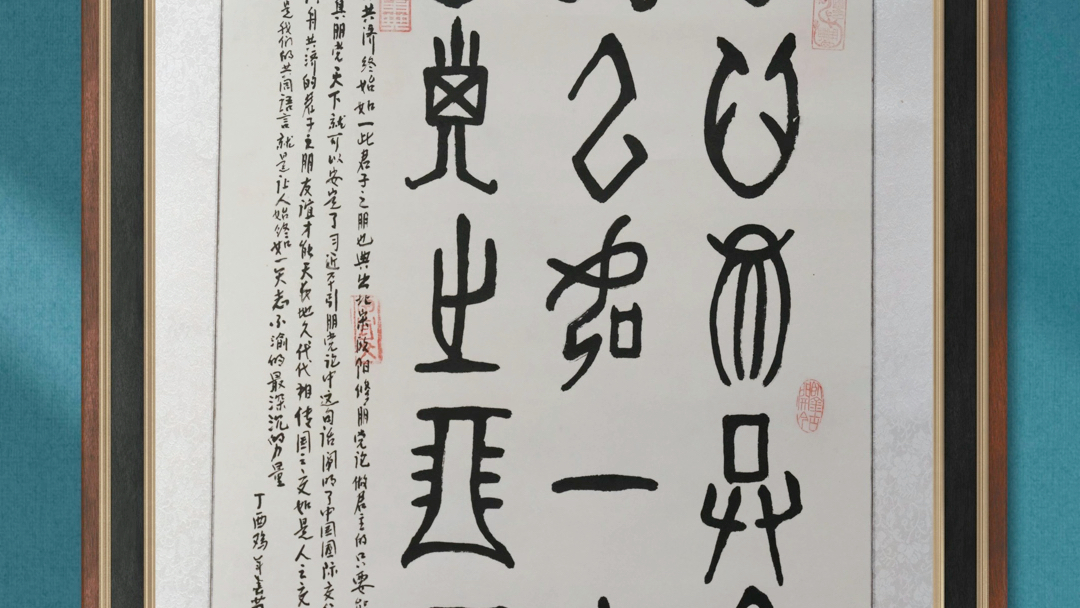 心而共
始如一
子之朋
共济终始如一此君子之朋也典出北宋欧阳修朋党论做君主的只要能
真朋党天下就可以安定了习近平引朋党论中这句话阐明了中国国际交往
舟共济的君子之朋友谊才能天长地久代代相传国之交如是人之交
是我们的共同语言就是让人始终如一矢志不渝的最深沉的力量
丁酉鸡年